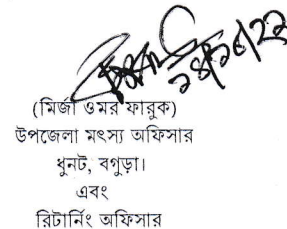 ২৪/১০/২২
(মির্জা ওমর ফারুক)
উপজেলা মৎস্য অফিসার
ধুনট, বগুড়া।
এবং
রিটার্নিং অফিসার